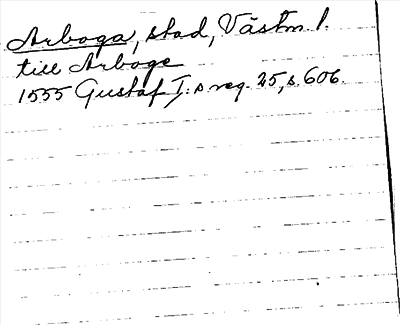 Arboga, stad, Västm l.
till Arboge
1555 Gustaf I:s reg. 25, s. 606.